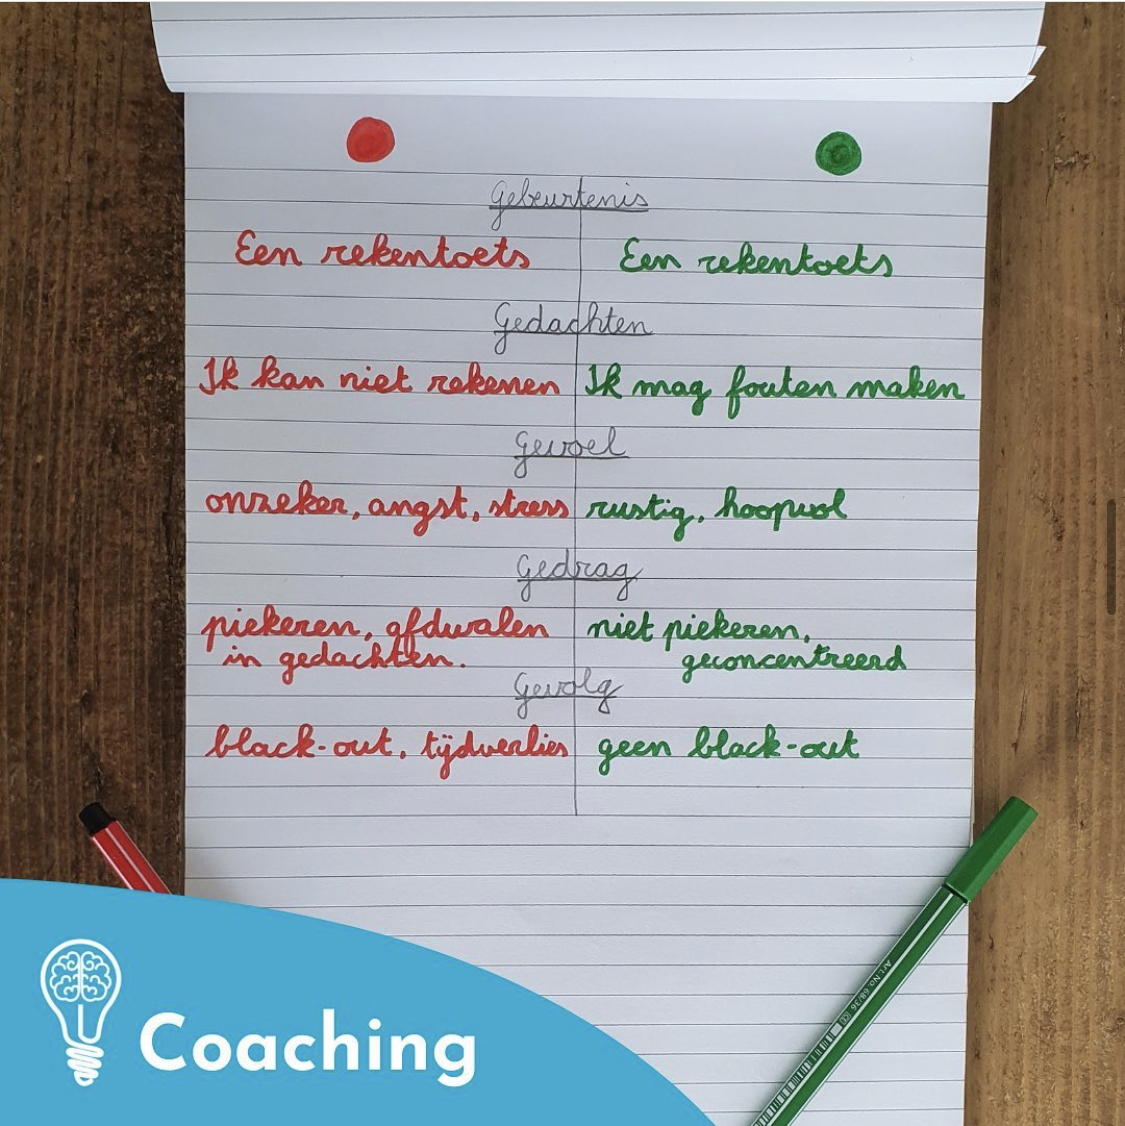 Gebeurtenis
Een rekentoets Een rekentoets
Gedachten
Ik kan niet rekenen Ik mag fouten maken
Gevoel
onzeker, angst, stress rustig, hoopvol
Gedrag
piekeren, afdwalen niet piekeren,
in gedachten. geconcentreerd
Gevolg
black-out, tijdverlies geen black-out
Art.No. 68/36
Coaching